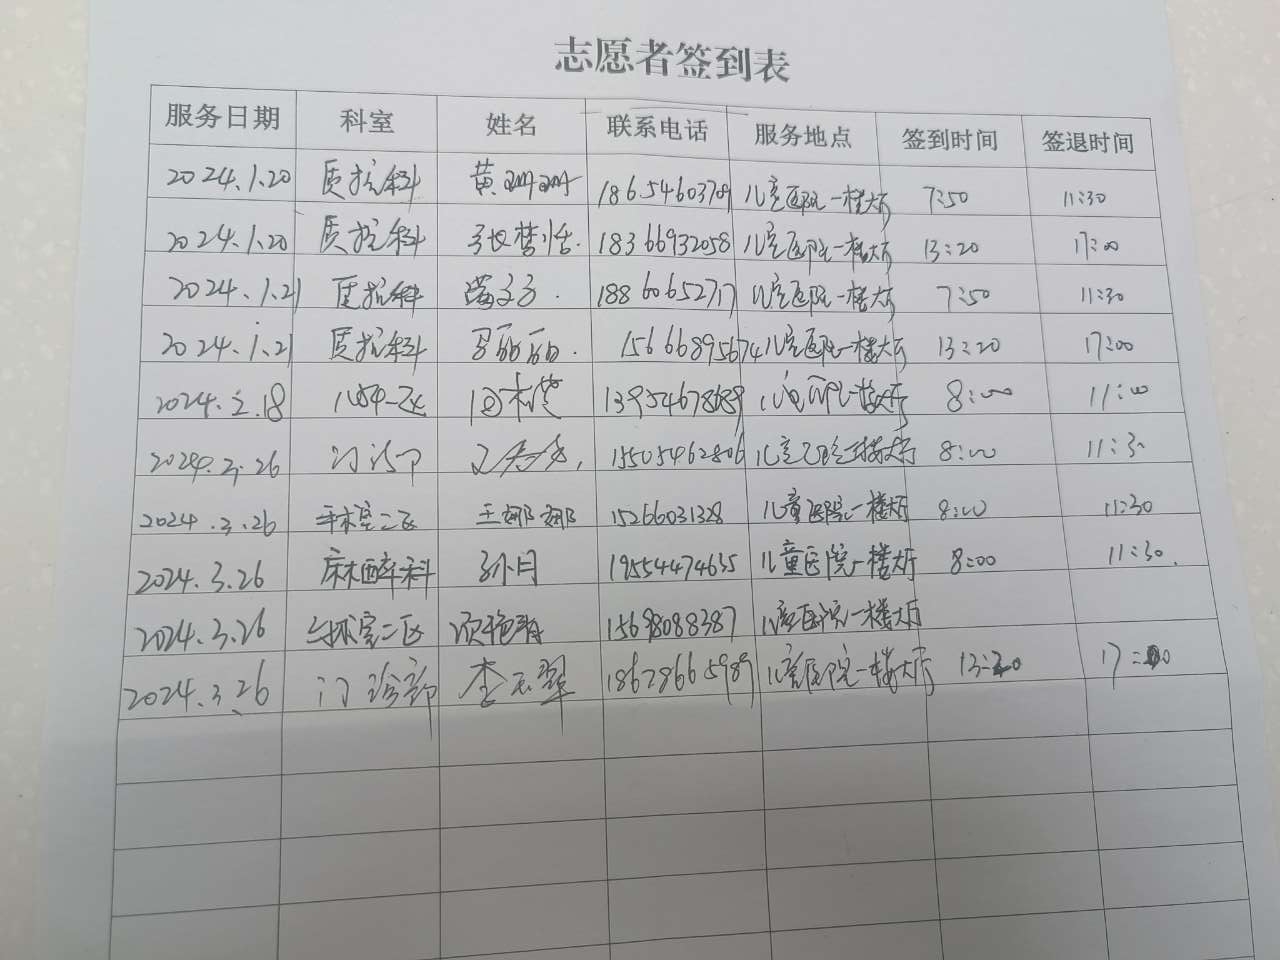 志愿者签到表
服务日期 科室 姓名 联系电话 服务地点 签到时间 签退时间
2024.1.20 质控科 黄珊珊 18654603709 儿童医院一楼大厅 7:50 11:30
2024.1.20 质控科 张梦恬 18366932058 儿童医院一楼大厅 13:20 17:00
2024.1.21 质控科 18860652717 儿童医院一楼大厅 7:50 11:30
2024.1.21 质控科 丽丽 15666895674 儿童医院一楼大厅 13:20 17:00
2024.2.18 13954678689 儿童医院一楼大厅 8:00 11:00
2024.2.26 门诊 15505462806 8:00 11:30
2024.3.26 手术室二区 王娜娜 15266031328 儿童医院一楼大厅 8:00 11:30
2024.3.26 麻醉科 孙月 19554474635 儿童医院一楼大厅 8:00 11:30
2024.3.26 手术室二区 15698088387 儿童医院一楼大厅
2024.3.26 门诊部 李玉翠 18678665989 儿童医院一楼大厅 13:20 17:00